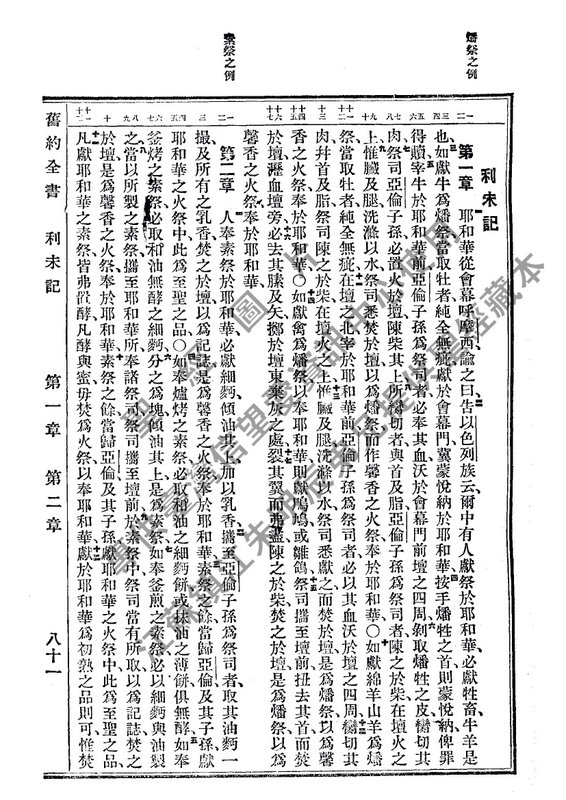 燔祭之例
素祭之例
利未記
第一章 耶和華從會幕呼摩西諭之曰告以色列族云爾中有人獻祭於耶和華必獻牲畜牛羊是
也如獻牛爲燔祭當取牡者純全無疵獻於會幕門冀蒙悅納於耶和華按手燔牲之首則蒙悅納俾罪
得贖宰牛於耶和華前亞倫子孫爲祭司者必奉其血沃於會幕門前壇之四周剝取燔牲之皮臠切其
肉祭司亞倫子孫必置火於壇陳柴其上所臠切者與首及脂亞倫子孫爲祭司者陳之於柴在壇火之
上惟臟及腿洗滌以水祭司悉焚於壇以爲燔祭而作馨香之火祭奉於耶和華〇如獻綿羊山羊爲燔
祭當取牡者純全無疵在壇之北宰於耶和華前亞倫子孫爲祭司者必以其血沃於壇之四周臠切其
肉幷首及脂祭司陳之於柴在壇火之上惟臟及腿滌以水祭司悉獻之而焚於壇是爲燔祭以爲馨
香之火祭奉於耶和華〇如獻禽爲燔祭以奉耶和華則獻鳲鳩或雛鴿祭司攜至壇前扭去其首而焚
於壇瀝血壇旁必去其膆及矢擲於壇東棄灰之處裂其翼而弗盡陳之於柴焚之於壇是爲燔祭以爲
馨香之火祭奉於耶和華
第二章 人奉素祭於耶和華必獻細麪傾油其上加以乳香攜至亞倫子孫爲祭司者取其油麪一
撮及所有之乳香焚之於壇以爲記誌是爲馨香之火祭奉於耶和華素祭之餘當歸亞倫及其子孫獻
耶和華之火祭中此爲至聖之品〇如奉爐烤之素祭必取和油之細麪餅或抹油之薄餅俱無酵如奉
釜烤之素祭必取和油無酵之細麪分之爲塊傾油其上是爲素祭如奉釜煎之素祭必以細麪與油製
之當以所製之素祭攜至耶和華所奉諸祭司祭司攜至壇前於素祭中祭司當有所取以爲記誌焚之
於壇是爲馨香之火祭奉於耶和華素祭之餘當歸亞倫及其子孫獻耶和華之火祭中此爲至聖之品
凡獻耶和華之素祭皆弗置酵凡酵與蜜毋焚爲火祭以奉耶和華獻於耶和華爲初熟之品則可惟焚
舊約全書 利未記 第一章 第二章 八十一